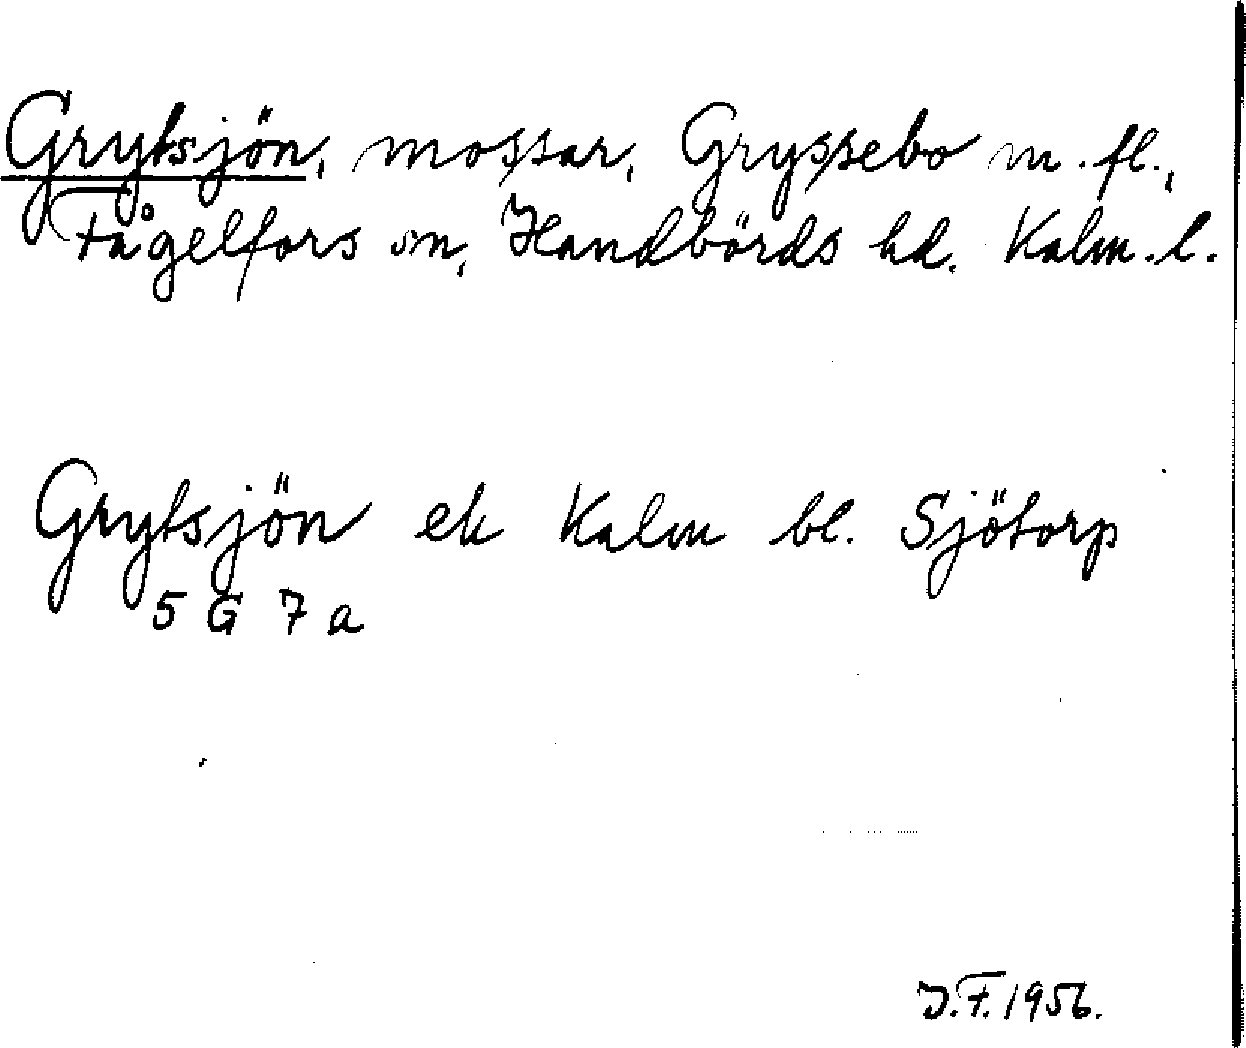 Grytsjön, mossar, Gryssebo m. fl.,
Fågelfors sn, Handbörds hd. Kalm. l.
Grytsjön ek Kalm bl. Sjötorp
5 G 7 a
J.F. 1956.